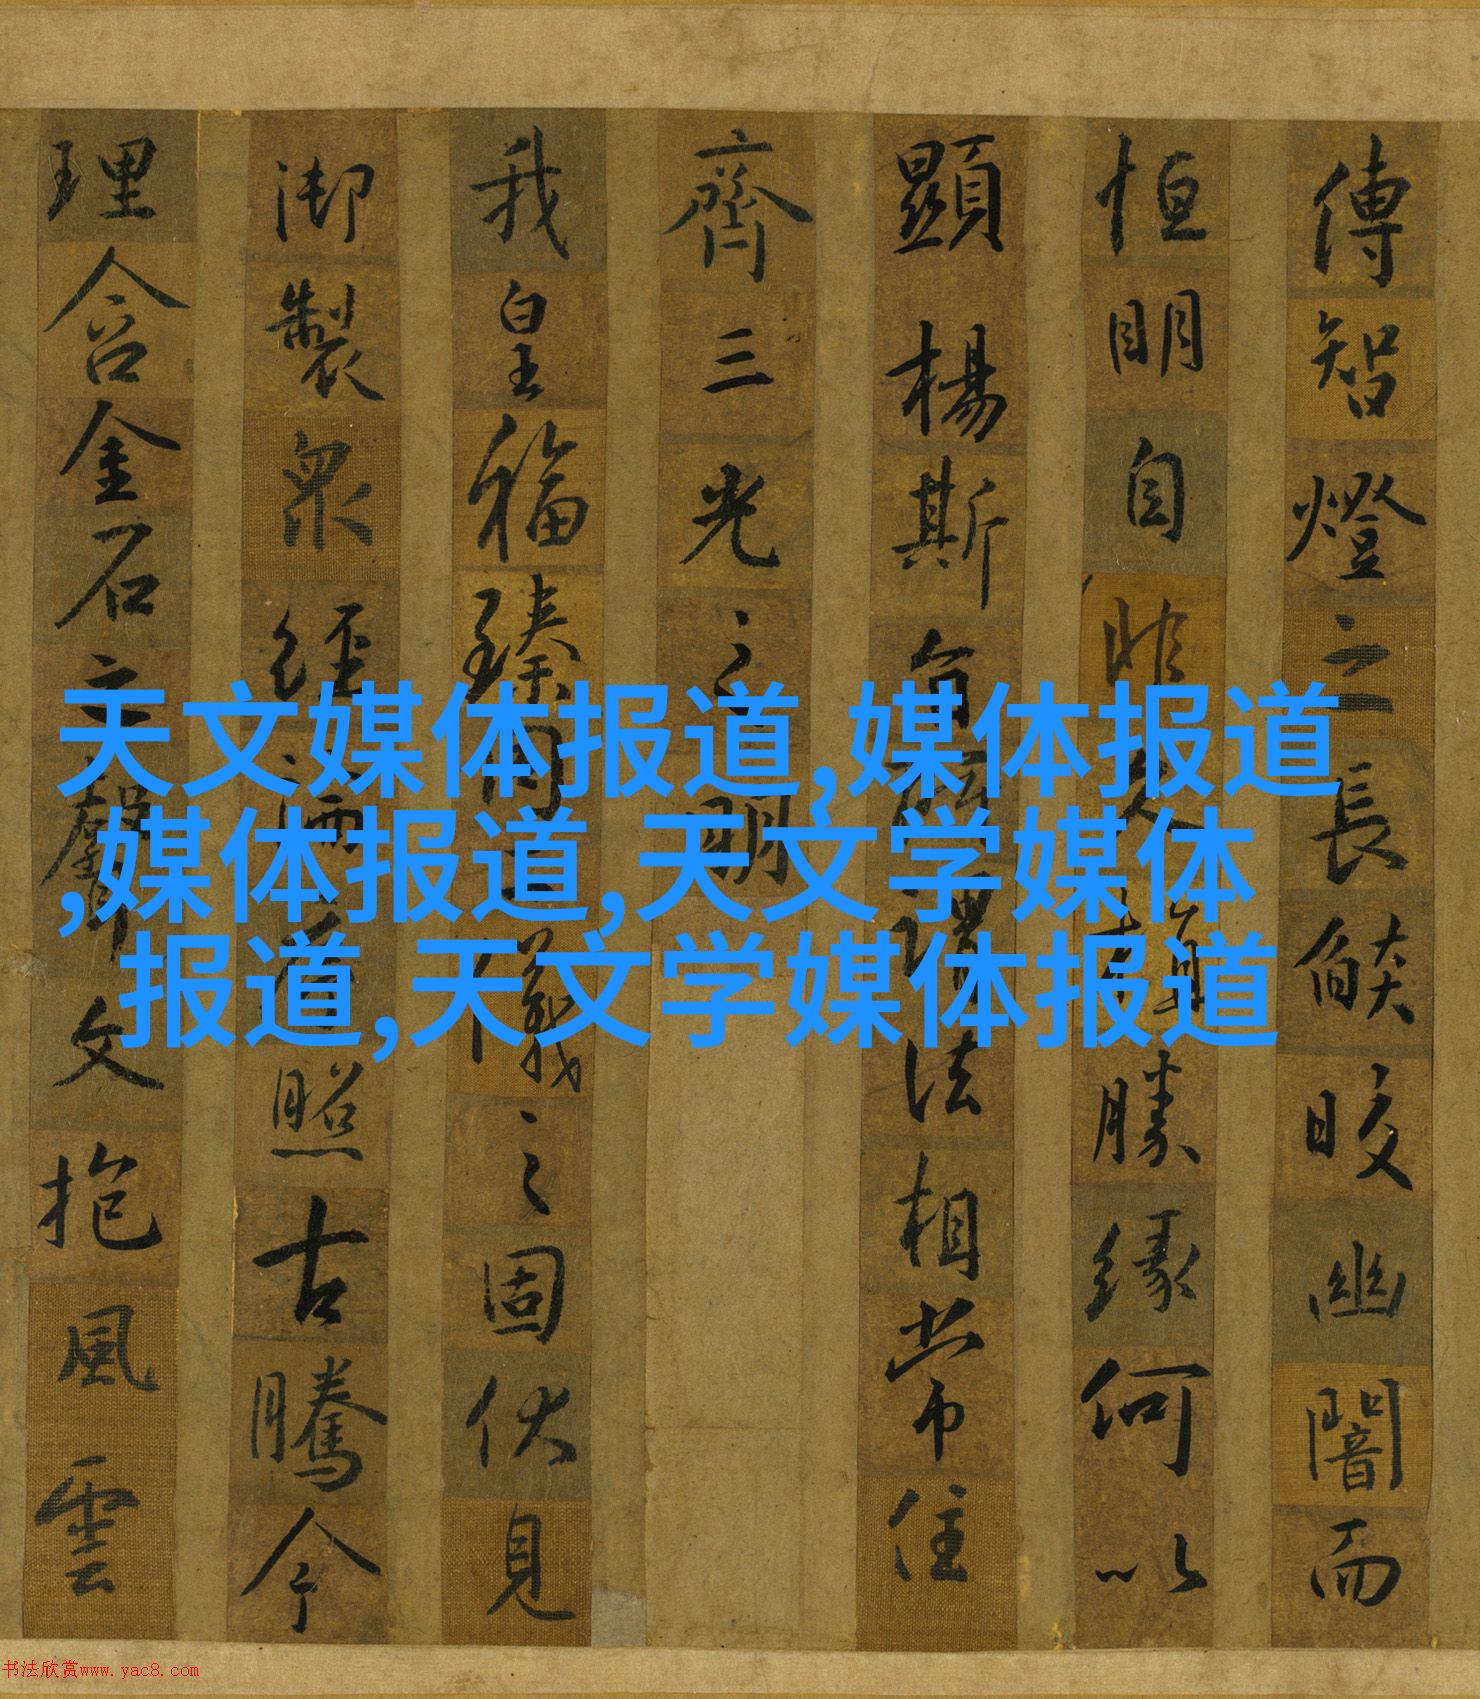 傳智燈之長燄晈幽闇而
恒明自非久植勝緣何以
顯楊斯旨所謂法相常住
齊三光之明
我皇福臻同二儀之固伏見
御製衆經論序照古騰今
理含金石之聲文抱風雲
天文媒体报道,媒体报道
,媒体报道,天文学媒体
报道,天文学媒体报道
书法欣赏www.yac8.com